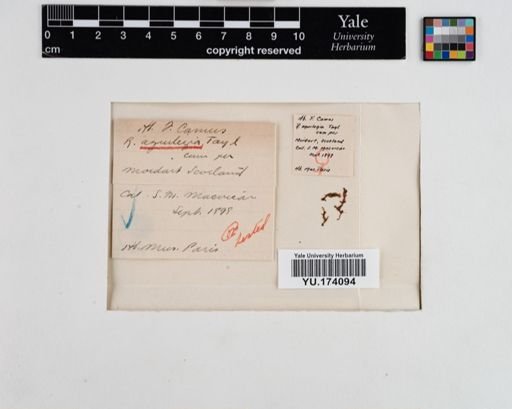 0 1 2 3 4 5 6 7 8 9 10
cm
copyright reserved
Yale
University
Herbarium
Hb. F. Camus
R. aquilegia Tayl
cum per
Moidart Scotland
Col. S. M. Macvicar
Sept. 1898
Hb. Mus. Paris
tested
Hb. F. Camus
R. aquilegia Tayl
cum per
Moidart, Scotland
Col. S. M. Macvicar
Sept. 1898
Hb. Mus. Paris
Yale University Herbarium
YU.174094